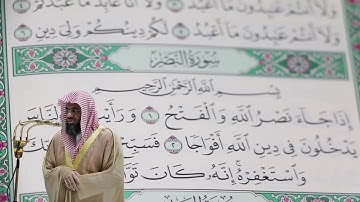 وَلَآ أَنتُمْ عَٰبِدُونَ مَآ أَعْبُدُ ٣ وَلَآ أَنَا۠ عَابِدٌ مَّا عَبَدتُّمْ ٤
وَلَآ أَنتُمْ عَٰبِدُونَ مَآ أَعْبُدُ ٥ لَكُمْ دِينُكُمْ وَلِىَ دِينِ ٦
سُورَةُ النَّصْرِ
بِسْمِ ٱللَّهِ ٱلرَّحْمَٰنِ ٱلرَّحِيمِ
إِذَا جَآءَ نَصْرُ ٱللَّهِ وَٱلْفَتْحُ ١ وَرَأَيْتَ ٱلنَّاسَ
يَدْخُلُونَ فِى دِينِ ٱللَّهِ أَفْوَاجًا ٢ فَسَبِّحْ
وَٱسْتَغْفِرْهُ إِنَّهُۥ كَانَ